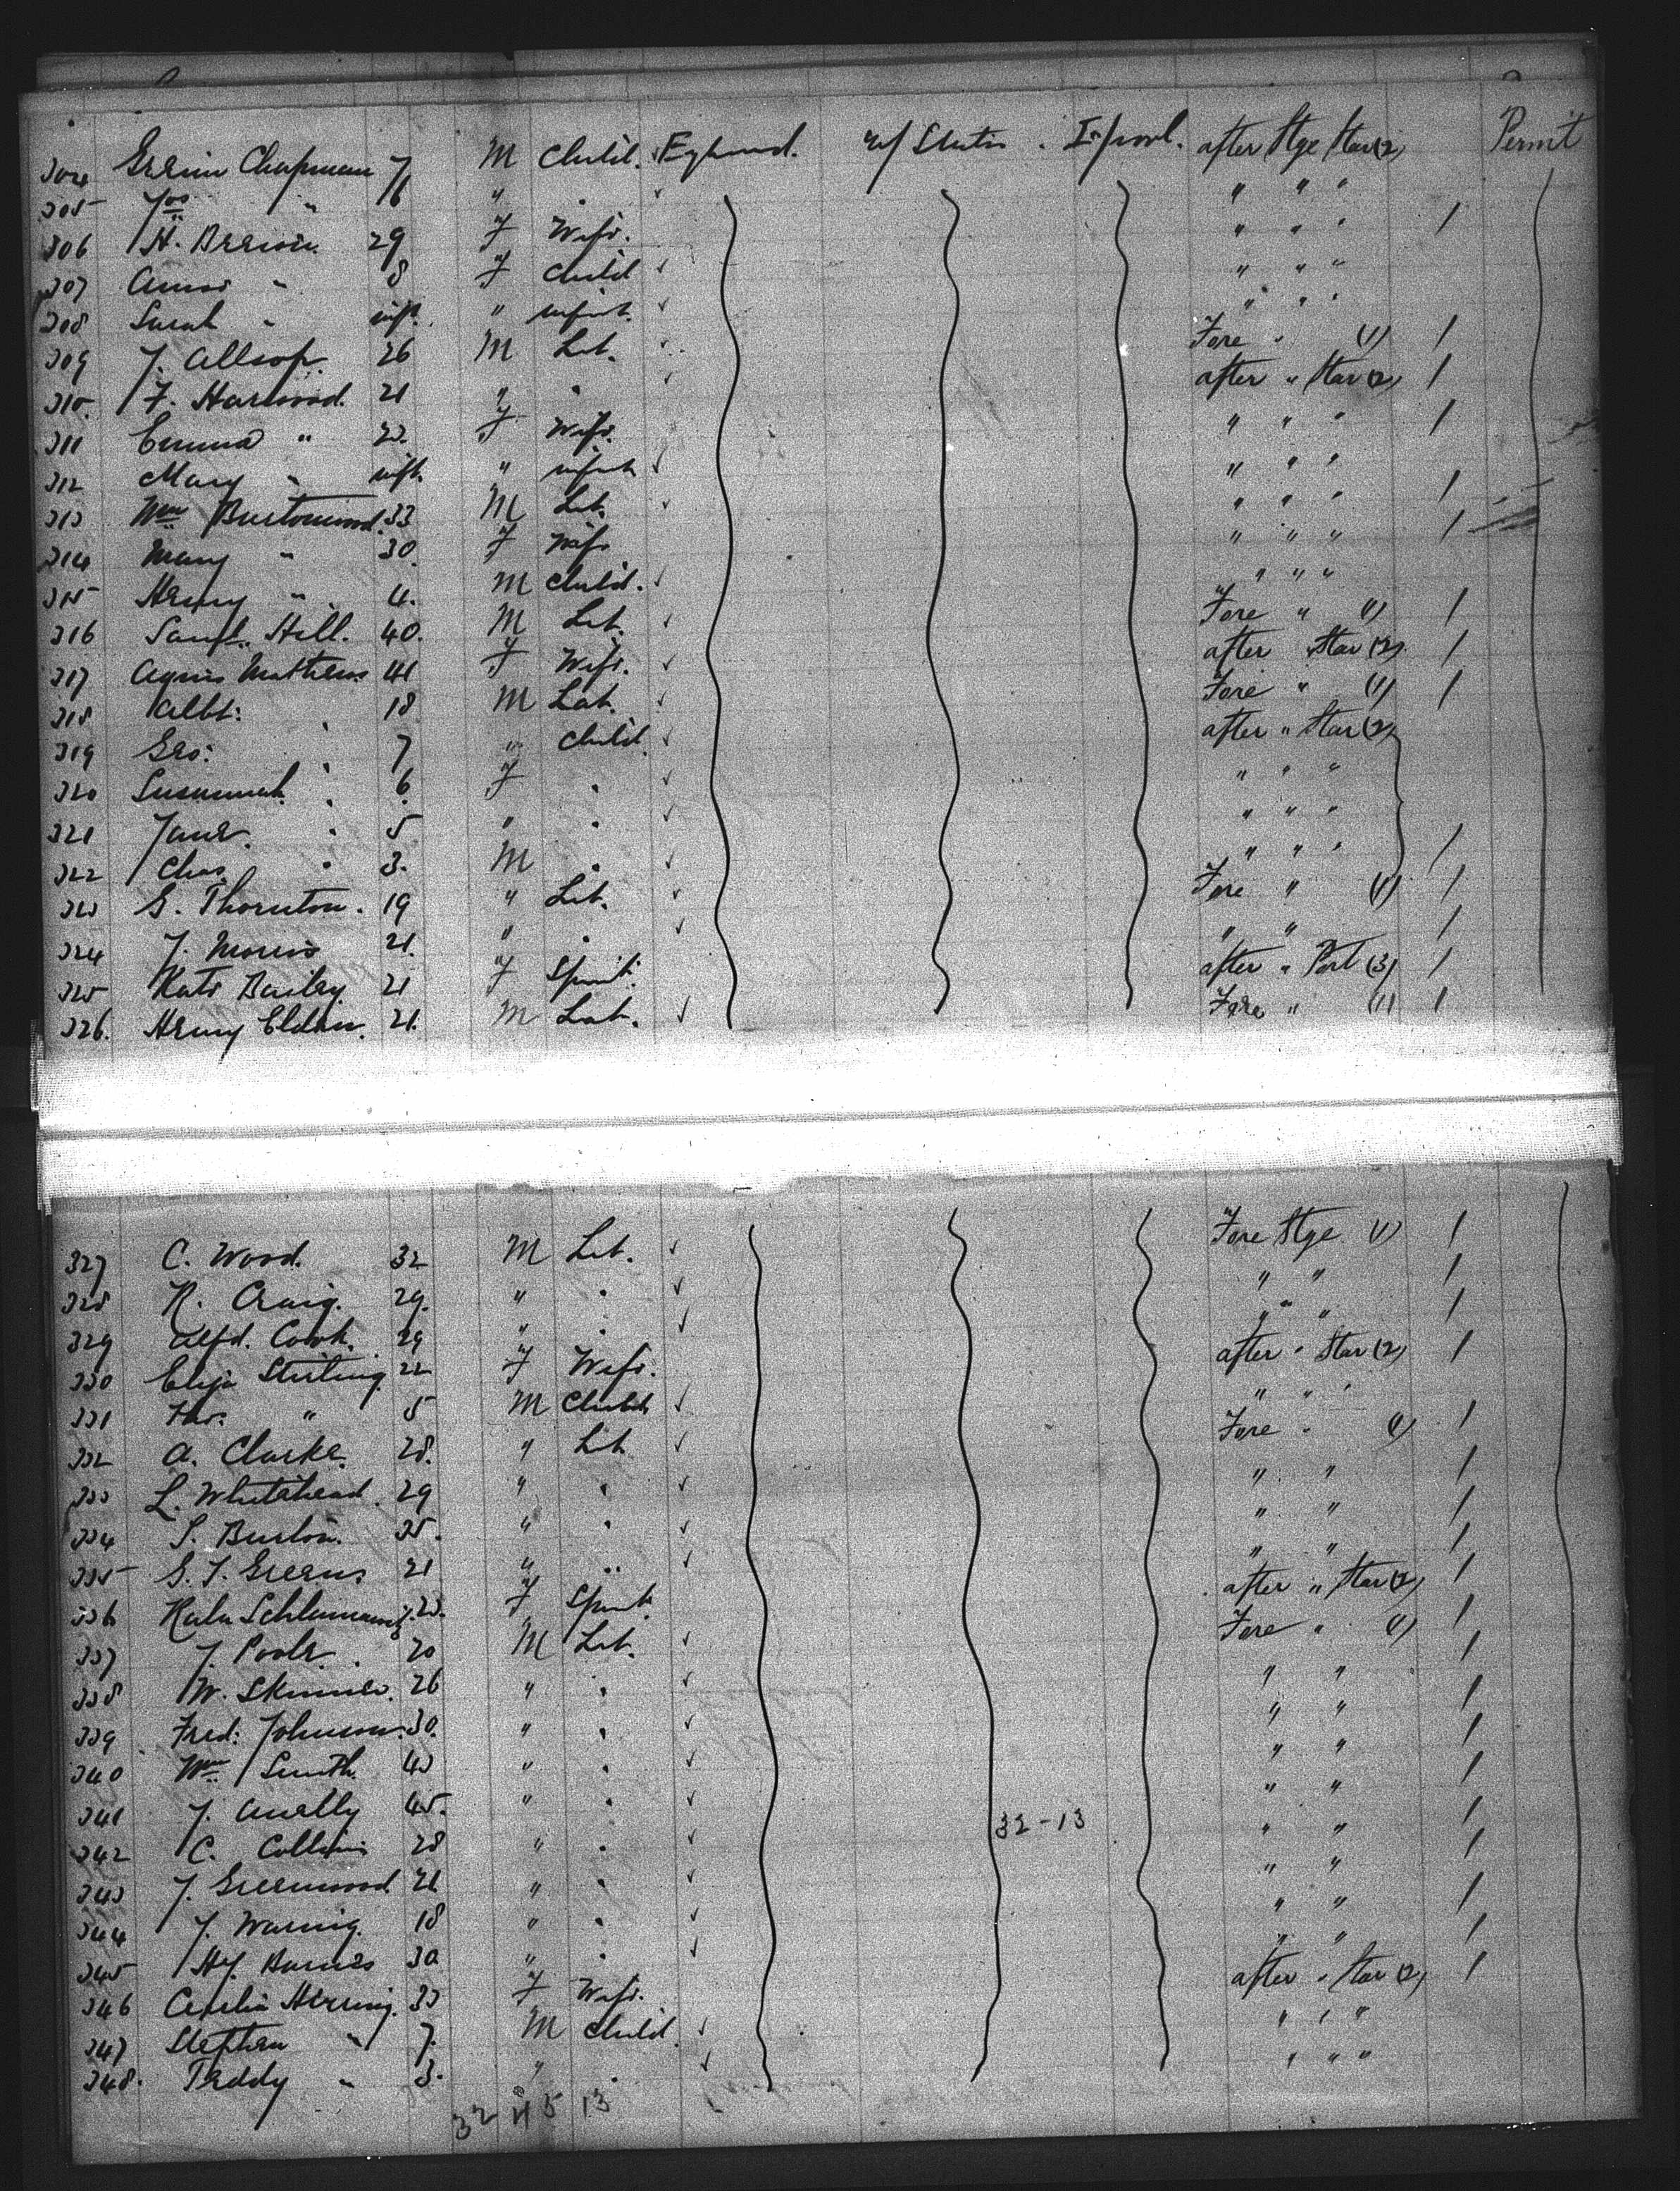 304 Chapman 7 M Child. England. u/ States. L'pool. after Stge Star (2) Permit
305 Jos " 6 " " " " "
306 H. 29 F Wife. " " " /
307 " 8 F Child " " "
308 Sarah " inft. " infant. " " "
309 J. Allsop. 26 M Lab. Fore " (1) /
310. F. Harwood. 21 " " after " Star (2) /
311 Emma " 23. F Wife. " " " /
312 Mary " inft. " infant " " "
313 Wm Burtonwood. 33 M Lab. " " " /
314 Mary " 30. F Wife " " " /
315 Henry " 4. M Child. " " "
316 Saml. Hill. 40. M Lab. Fore " (1) /
317 Agnes Mathews 41 F Wife. after " Star (2) /
318 Albt: " 18 M Lab. Fore " (1) /
319 Geo: " 7 " Child. after " Star (2)
320 Susannah " 6. F " " " "
321 Jane. " 5 " " " " "
322 Chas. " 3. M " " " " /
323 G. Thornton. 19 " Lab. Fore " (1) /
324 J. Morris 21. " " " " /
325 Kate Bailey. 21 F Spinst. after " Port (3) /
326. Henry Elden. 21. M Lab. Fore " (1) /
327 C. Wood. 32 M Lab. Fore Stge (1) /
328 R. Craig. 29. " " " " /
329 Alfd. Cook. 29 " " " " /
330 Eliza Stirling. 22 F Wife. after " Star (2) /
331 Tho. " 5 M Child " " "
332 A. Clarke. 28. " Lab Fore " (1) /
333 L. Whitehead. 29 " " " " /
334 S. Burton. 35. " " " " /
335 G. J. Greens 21 " " " " /
336 23. F Spinst. after " Star (2) /
337 J. Poole. 20 M Lab. Fore " (1) /
338 W. Skinner. 26 " " " " /
339 Fred: Johnson. 30. " " " " /
340 Wm Smith. 43 " " " " /
341 J. 45. " " " " /
32-13
342 C. Collins 28 " " " " /
343 J. Greenwood 21 " " " " /
344 J. Waring. 18 " " " " /
345 Hy. Barnes 30 " " " " /
346 Herring. 33 F Wife. after " Star (2) /
347 Stephen " 7. M Child. " " "
348. Teddy " 3. " " " " "
32 11 5 13